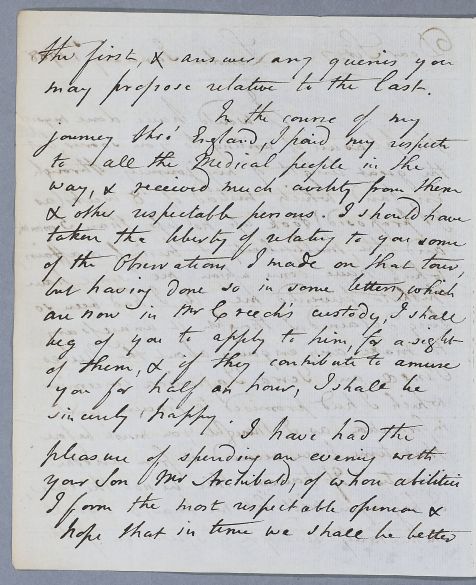 the first, & answer any queries you
may propose relative to the last.
In the course of my
journey thro' England, I paid my respects
to all the Medical people in the
way, & received much civility from them
& other respectable persons. I should have
taken the liberty of relating to you some
of the Observations I made on that tour,
but having done so in some letters, which
are now in Mr Creech's custody, I shall
beg of you to apply to him, for a sight
of them, & if they contribute to amuse
you for half an hour, I shall be
sincerely happy.
I have had the
pleasure of spending an evening with
your Son Mr Archibald, of whose abilities
I form the most respectable opinion &
hope that in time we shall be better